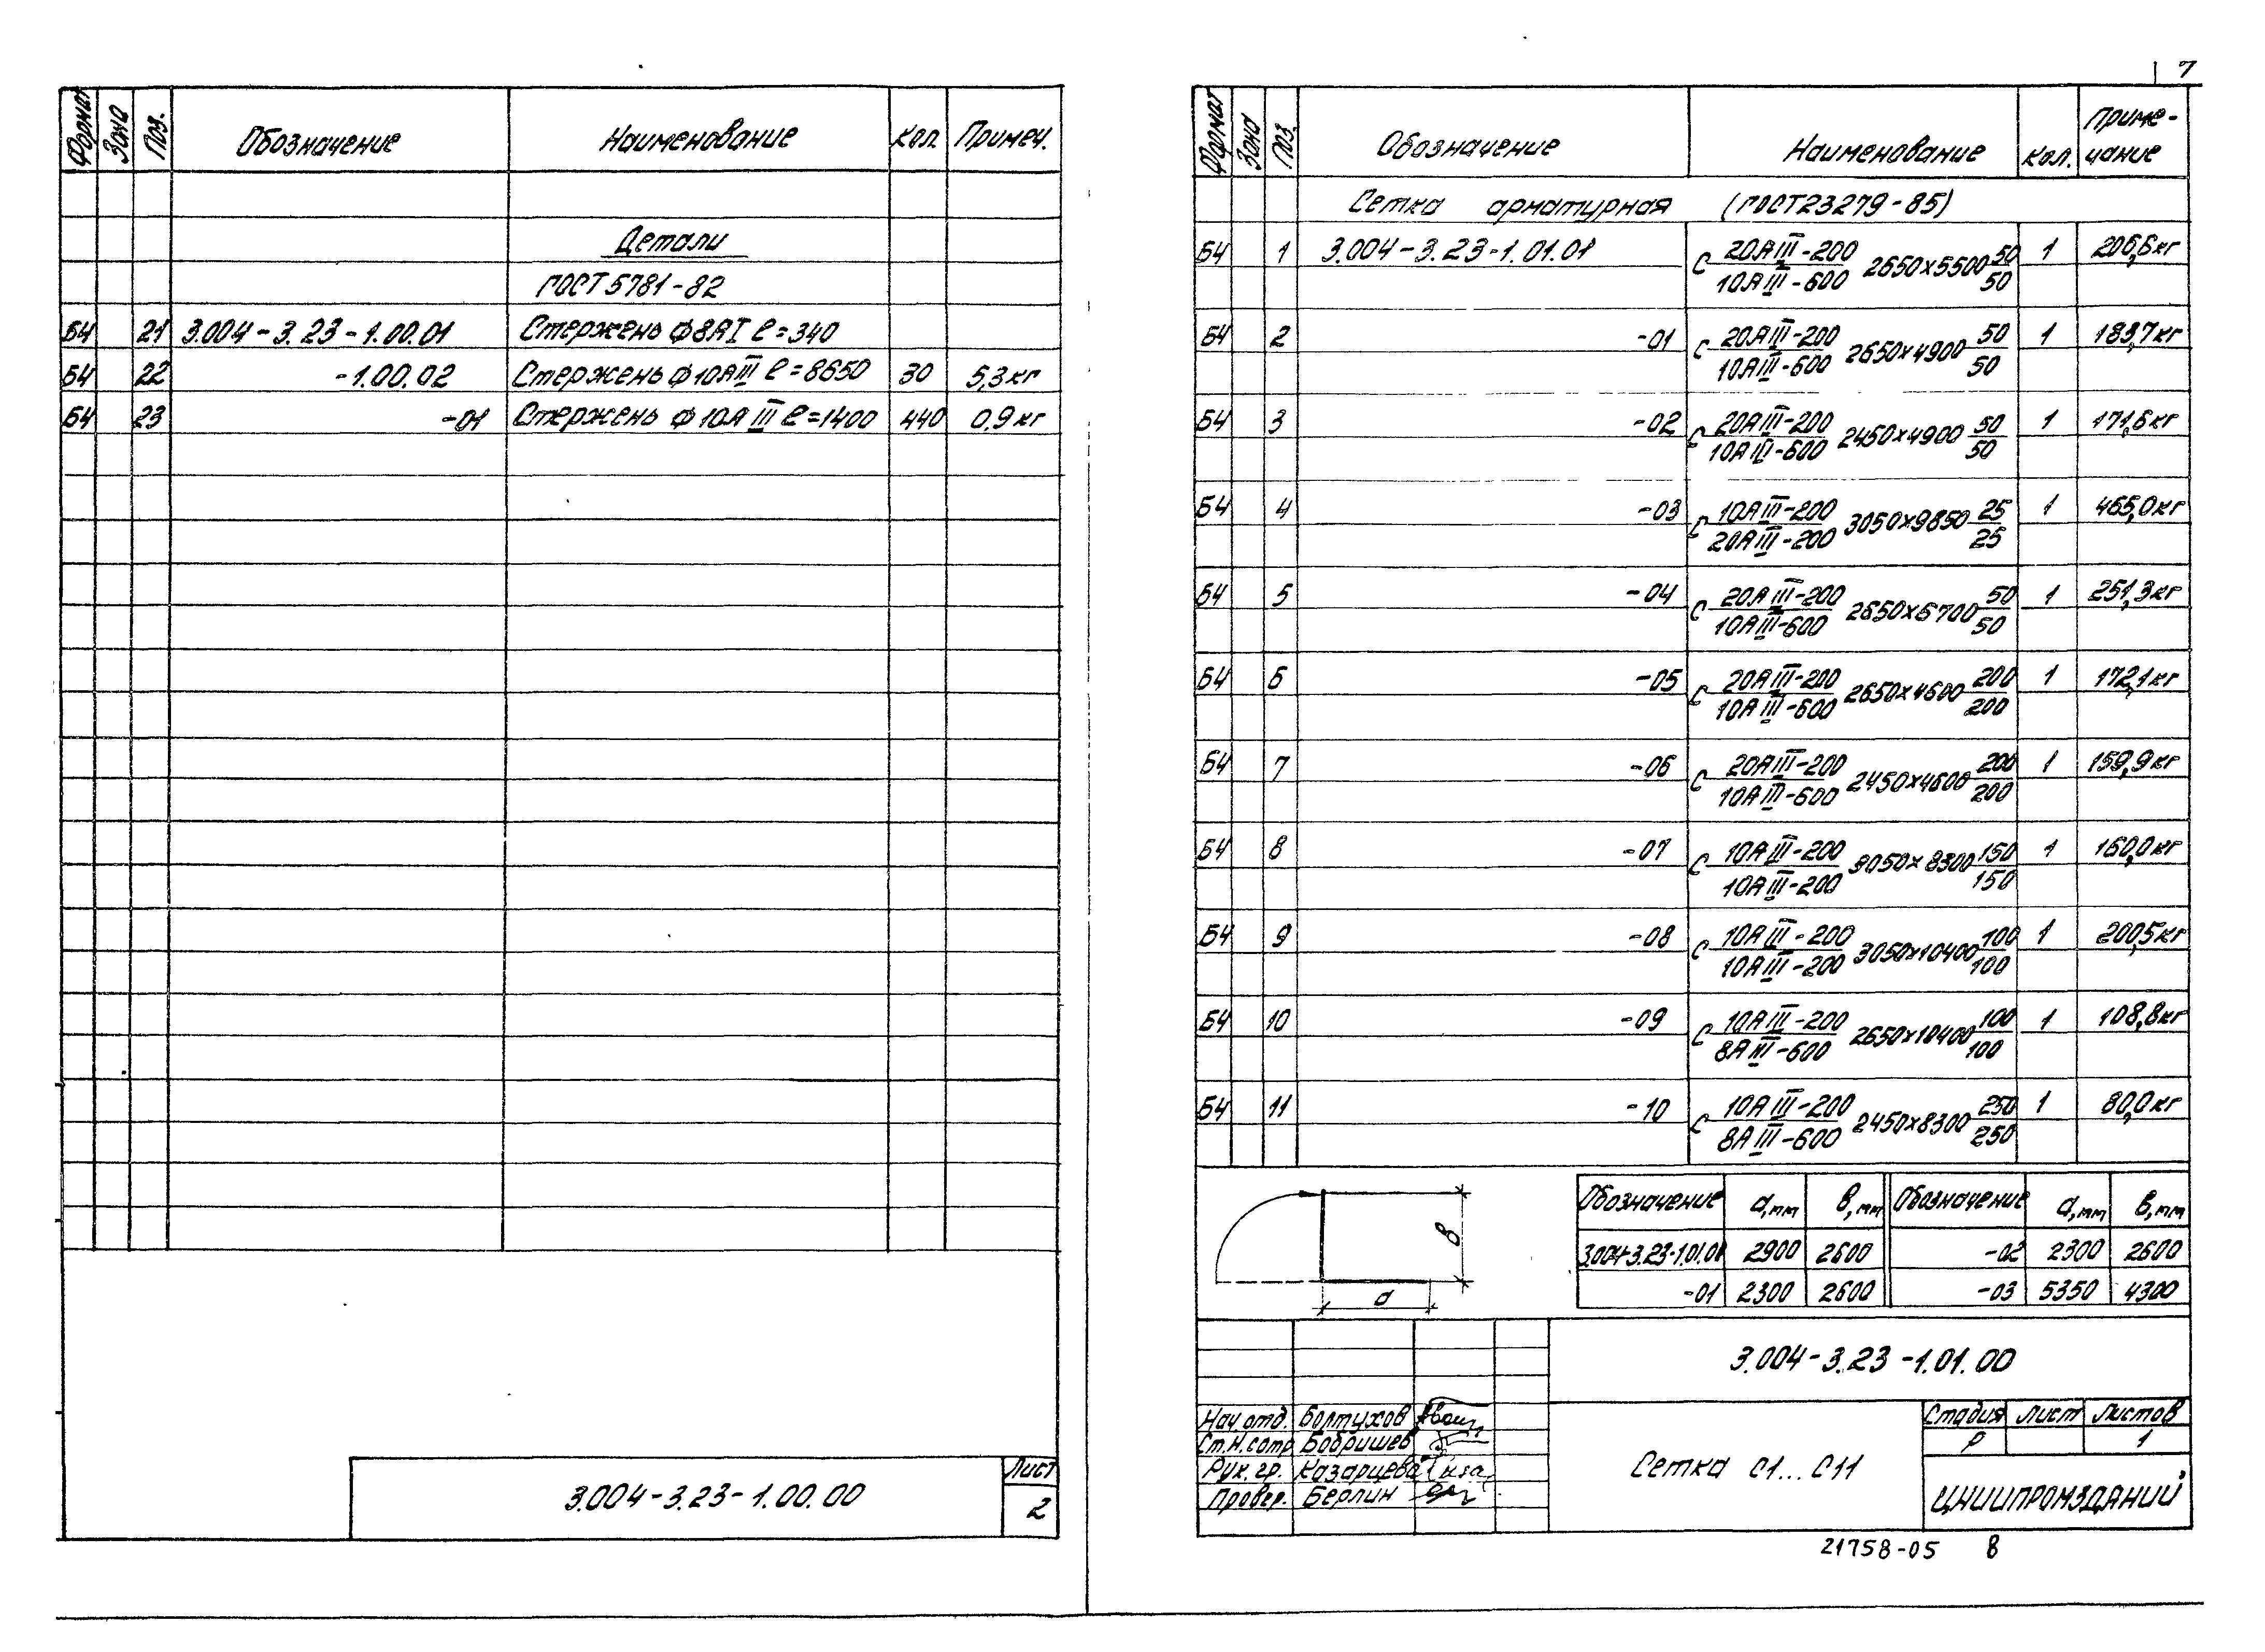 Формат Зона Поз. Обозначение Наименование Кол. Примеч.
Детали
ГОСТ 5781-82
БЧ 21 3.004-3.23-1.00.01 Стержень ф8АI ℓ=340
БЧ 22 -1.00.02 Стержень ф10АIII ℓ=8650 30 5,3кг
БЧ 23 -01 Стержень ф10АIII ℓ=1400 440 0,9кг
3.004-3.23-1.00.00
Лист
2
7
Формат Зона Поз. Обозначение Наименование Кол. Приме-
чание
Сетка арматурная (ГОСТ23279-85)
БЧ 1 3.004-3.23-1.01.01 С 20АIII-200/10АIII-600 2650х5500 50/50 1 206,6кг
БЧ 2 -01 С 20АIII-200/10АIII-600 2650х4900 50/50 1 183,7кг
БЧ 3 -02 С 20АIII-200/10АIII-600 2450х4900 50/50 1 171,6кг
БЧ 4 -03 С 10АIII-200/20АIII-200 3050х9850 25/25 1 465,0кг
БЧ 5 -04 С 20АIII-200/10АIII-600 2650х6700 50/50 1 251,3кг
БЧ 6 -05 С 20АIII-200/10АIII-600 2650х4600 200/200 1 172,1кг
БЧ 7 -06 С 20АIII-200/10АIII-600 2450х4600 200/200 1 159,9кг
БЧ 8 -07 С 10АIII-200/10АIII-200 3050х8300 150/150 1 160,0кг
БЧ 9 -08 С 10АIII-200/10АIII-200 3050х10400 100/100 1 200,5кг
БЧ 10 -09 С 10АIII-200/8АIII-600 2650х10400 100/100 1 108,8кг
БЧ 11 -10 С 10АIII-200/8АIII-600 2450х8300 250/250 1 80,0кг
в
а
Обозначение а,мм в,мм Обозначение а,мм в,мм
3.004-3.23-1.01.01 2900 2600 -02 2300 2600
-01 2300 2600 -03 5350 4300
3.004-3.23-1.01.00
Нач.отд. Болтухов
Ст.н.сотр Бобришев
Рук.гр. Казарцева
Провер. Берлин
Сетка С1...С11
Стадия Лист Листов
Р 1
ЦНИИПРОМЗДАНИЙ
21758-05 8